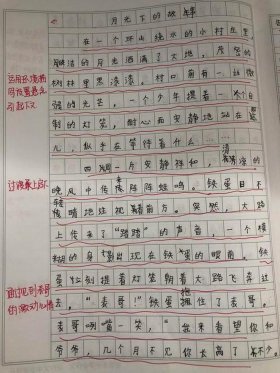 月光下的故事
在一个环山绕水的小村庄里，
皎洁的月光洒满了大地，茂密的
树林里黑漆漆。村口前有一丝微
弱的光芒，一个少年提着一个自
制的灯笼，耐心而安静地站在
儿，似乎在等待着什么……
四周一片安静祥和，凉的
晚风中传来阵阵蛙鸣。铁蛋目不
转睛地注视着前方。突然，大路
上传来了“踏踏”的声音，一个模
糊的身影出现在铁蛋的眼前，铁
蛋忙刻提着灯笼朝着大路飞奔过
去，“表哥！”铁蛋拥住了表哥。
表哥咧嘴一笑，“您来看望你和
爷爷，几个月不见你长高了不少。
运用环境描
写设置悬念
引起下文
过渡承上启下
见到表哥
的激动心情